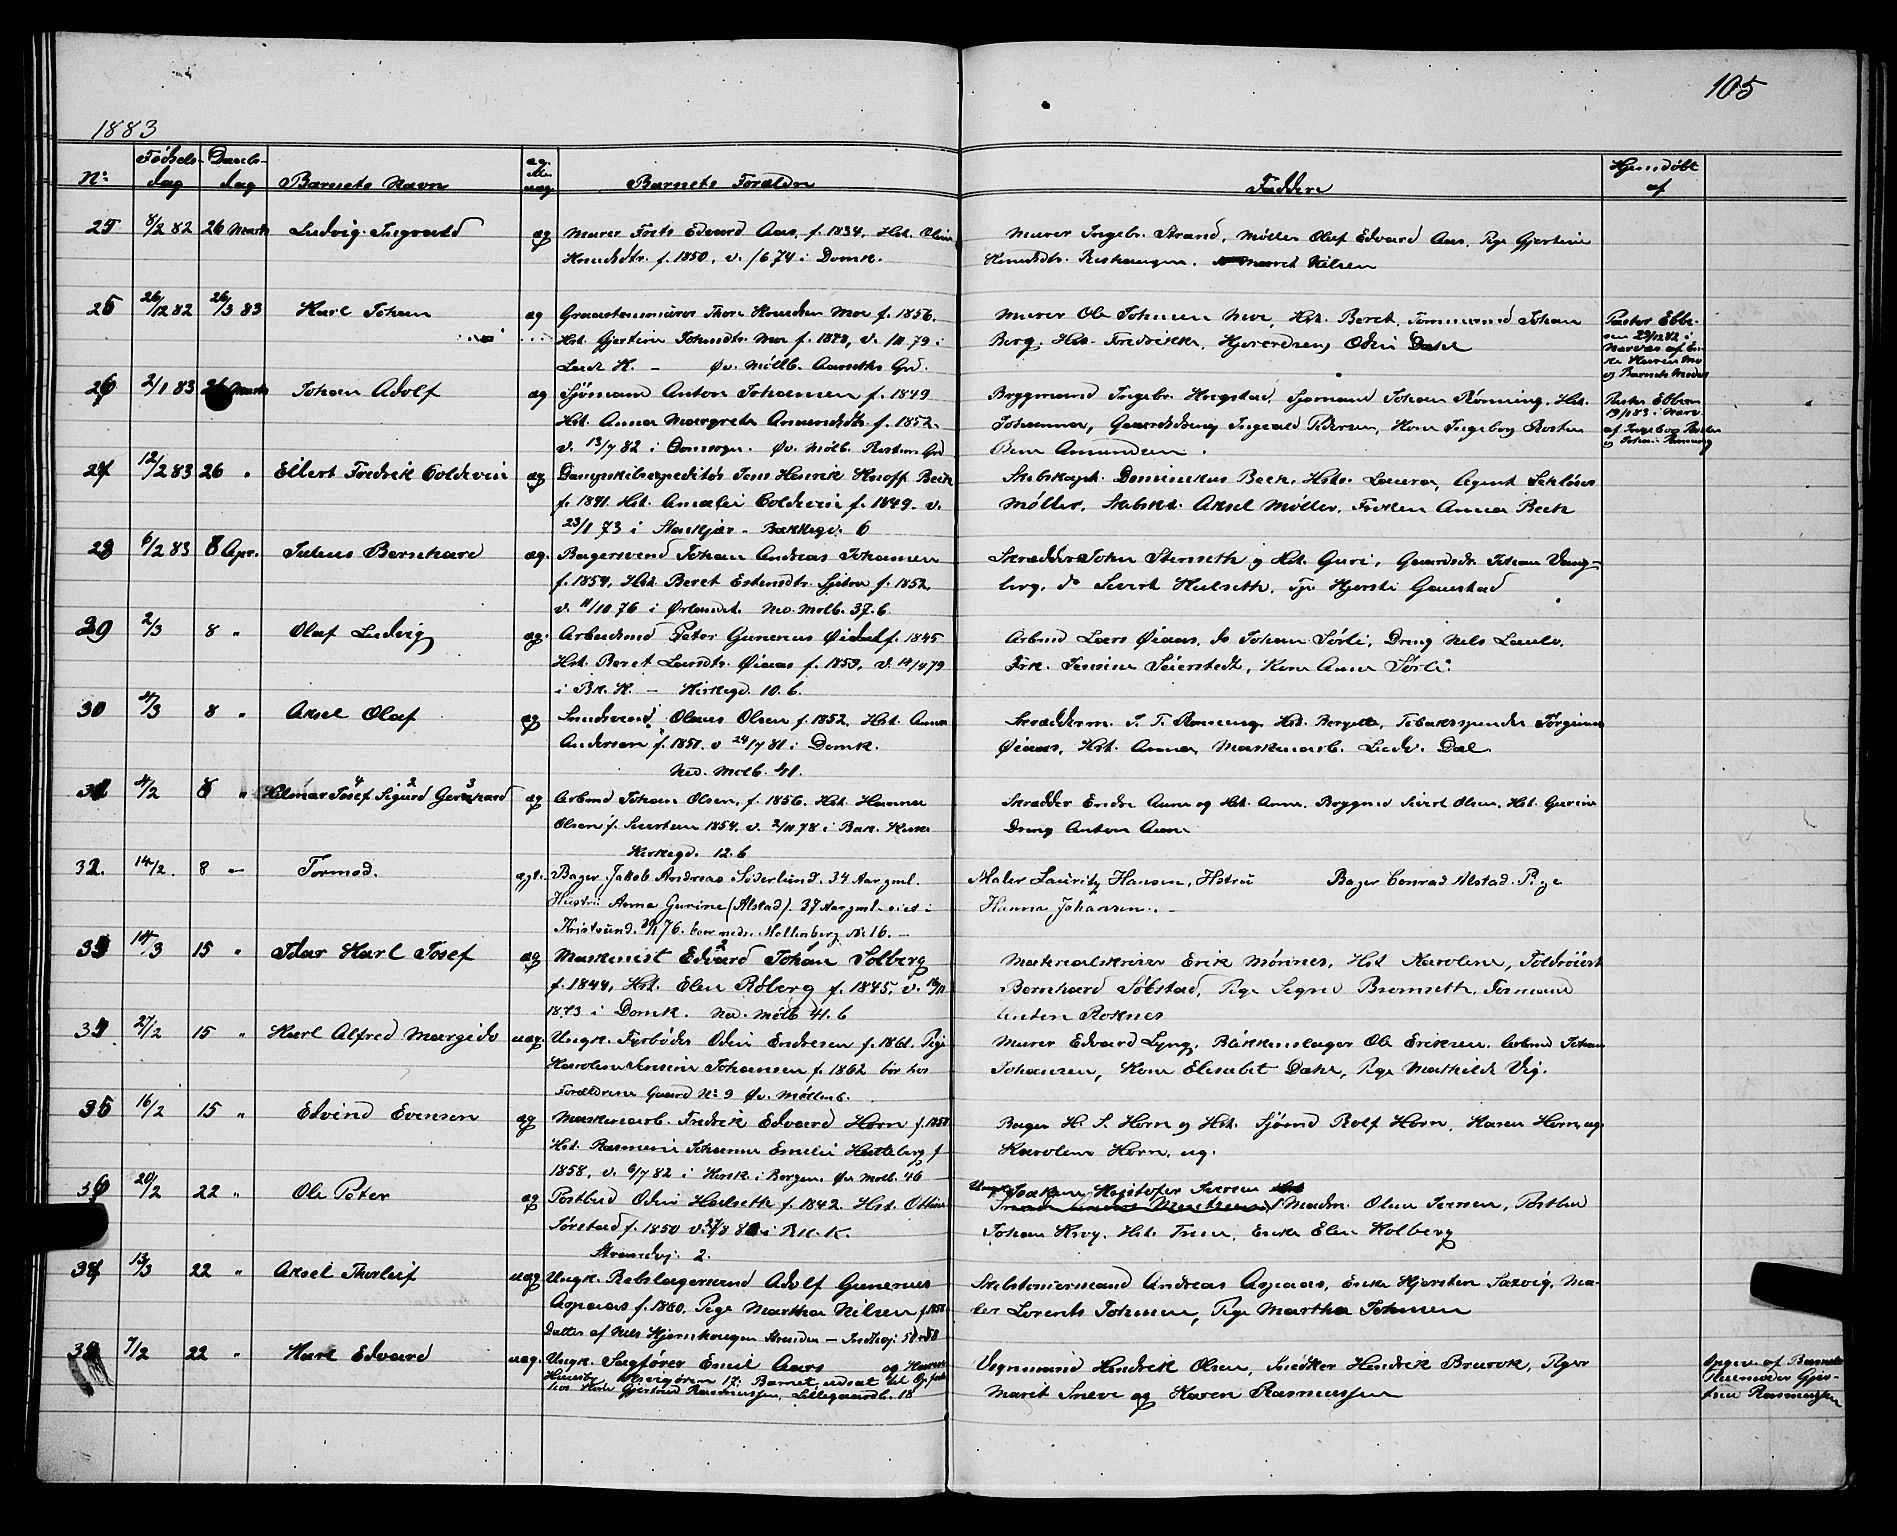 105
1883
No Fødsels- dag Daabs- dag Barnets Navn æg. el. uæg. Barnets Forældre Faddere Hjemdøbt af
25 8/2 82 26 Marts Ludvig Ingvald æg Murer Frits Edvard Aas, f. 1834, Hst. Oline
Knudsdtr. f. 1850, v. /6 74 i Domk.
Murer Ingebr. Strand, Møller Olaf Edvard Aas, Pige Gjertine
Knudsdtr. Nilsen
25 26/12 82 26/3 83 Karl Johan æg Graastensmurer Thore Knudsen Moe f. 1856.
Hst. Gjertine Johnsdtr. Moe f. v. /10 79 i
Lade K. — Øv. Møllb. Aarseths Grd.
Murer Ole Johnsen Moe, Hst. Beret, Tømmermd Johan
Berg, Hst. Fredrikke, Odin Dahl
Pastor Ebbe-
sen 29/12 82 i
Nærvær af En-
ke Karen Mo
og Barnets Moder
26 2/1 83 26 Marts Johan Adolf æg Sjømand Anton Johansen f. 1849
Hst. Anna Margrete Amundsdtr. f. 1852.
v. 13/7 82 i Øv. Møllb. Rostens Grd
Bryggmand Ingebr. Haugstad, Sjømand Johan Rønning, Hst.
Johanna, Gaardsdreng Ingvald Pedersen, Kone Ingeborg Rosten
Amundsen.
Pastor Ebbesen
19/1 83 i Nærv.
af Ingeborg Rosten
og Johan Rønning
27 12/2 83 26 " Eilert Fredrik Coldevin æg Dampskibsexpeditør Jens Henrik Knoff Beck
f. 1841. Hst. Amalie Coldevin f. 1849. v.
23/1 73 i Stenkjær — Bakkegd. 6
Skibskapt. Dominikus Beck, Hst. Laura, Agent
Møller, Skibskt. Aksel Møller, Frøken Anna Beck
28 6/2 83 8 Apr. Julius Bernhard æg. Bagersvend Johan Andreas Johansen
f. 1854, Hst. Beret Estensdtr. f. 1852,
v. 11/10 76 i Ørlandet. Ned. Møllb. 37.b.
Skrædder John Stenseth og Hst. Guri, Gaardsdr. Johan Vang-
berg, do Sivert Hulseth, Pge Kjersti Gaustad
29 2/3 8 " Olaf Ludvig æg. Arbeidsmd Peter Gunerus f. 1845
Hst. Beret Larsdtr. Øiaas f. 1859, v. 14/4 79
i Bk. K. — Kirkegd. 10.b.
Arbmd Lars Øiaas, do Johan Sørli, Dreng Nels
Frk. Jensine Seierstedt, Kone Anne Sørli.
30 4/3 8 " Aksel Olaf æg Smedsvend Olaus Olsen f. 1852, Hst. Anna
Andersen f. 1851. v 24/7 81 i Domk.
Ned. Møllb. 41.
Skrædderm. J. T. Rønning, Hst. Bergitte, Tobaksspinder Jørginus
Øiaas, Hst. Anna, Maskinarb. Ludv. Dal.
31 4/2 8 " Hilmar Josef 4 Sigurd 2 Gerhard 3 æg Arbmd Johan Olsen, f. 1856. Hst. Hanna
Olsen f. Sivertsen 1854, v. 2/11 78 i Bak. Kirke
Kirkegd. 12.b
Skrædder Endre Aune og Hst. Anne, Bryggmd Sivert Olsen, Hst. Gurine
Dreng Anton Aune
32. 14/2. 8 — Tormod. ægt. Bager Jakob Andreas Söderlund. 34 Aar gml.
Hustru Anna Gurine (Alstad). 37 Aar gml. viet i
Kristsund. 76. boe neds. Mollenberg No 16.—
Maler Lauritz Hansen, Hstru Bager Conrad Alstad. Pige
Hanna Johansen. —
33 14/3 15 " Idar Karl Josef æg Maskinist Edvard 2 Johan 1 Solberg
f. 1844, Hst. Elen Røberg f. 1845, v. /11
1873 i Domk. Ned. Møllb 41.b
Materialskriver Erik Mørines, Hst Karoline, Toldrorist
Bernhard Søbstad, Pige Signe Bromseth, Formand
Anton Roknes
34 27/2 15 " Karl Alfred Margido uæg. Ungk. Fyrbøder Odin Endresen f. 1861. Pige
Karoline Jensine Johansen f. 1862 bor hos
Forældrene Gaard No 9 Øv. Møllenb.
Murer Edvard Lyng, Blikkenslager Ole Eriksen, Arbmd Johan
Johansen, Kone Elisabet Dahl, Pige Mathilde Vig.
35 16/2 15 " Edvind Evensen æg Maskinarb. Fredrik Edvard Horn f. 1858
Hst. Rasmine Johanne Emelie Hatteberg f.
1858, v. 6/7 82 i Korsk. i Bergen. Øv Møllb. 46
Bager H. S. Horn og Hst. Sjømd Rolf Horn, Karen Horn, ug
Karoline Horn, ug.
36 20/2 22 " Ole Peter æg Postbud Odin Hulseth f. 1842. Hst. Ottine
Sørstad f. 1850 v. 27/8 8 i Bk. K.
Strandvj. 2.
Ungk. Joakim Kristofer Iversen
Madm. Oline Iversen, Postbud
Johan Krog, Hst. Trine, Enke Elen Kolberg
37 13/3 22 " Aksel Thorleif uæg Ungk. Rebslagersvend Adolf Gunerius
Aspaas f. 1860. Pige Martha Nilsen f. 1858
Datter af Nils Kjernhougen Strinden — Indhvj: 58
Skibstømmermand Andreas Aspaas, Enke Kjersten Saxvig, Ma-
ler Lorents Johnsen, Pige Martha Johnsen
38 7/2 22 " Karl Edvard uæg. Ungk. Sagfører Emil Aars og
17: Barnet udsat til Opfost.
hos Kone Gjertrud Rasmussen, Lillegaardb. 18
Vognmand Hendrik Olsen, Snedker Hendrik Bruvik, Piger
Marit Sneve og Karen Rasmussen
Opgive af Barnets
Pleiemoder Gjer-
trud Rasmussen